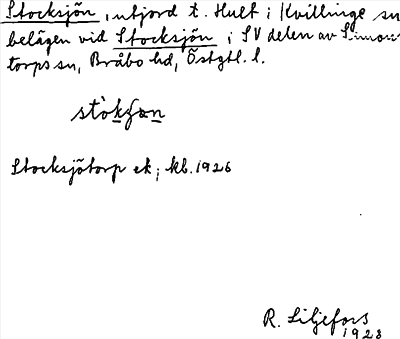 Stocksjön, utjord t. Hult i Kvillinge sn
belägen vid Stocksjön i SV delen av Simons-
torps sn, Bråbo hd, Östgtl. l.
Stocksjötorp ek; kb. 1926
R. Liljefors
1928